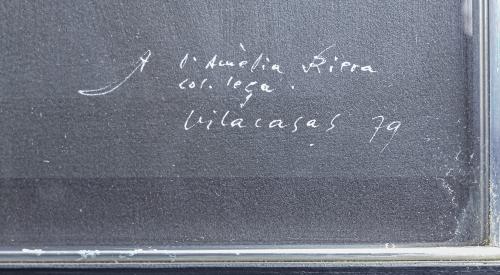 A l'Amèlia Riera
col.lega.
Vilacasas 79